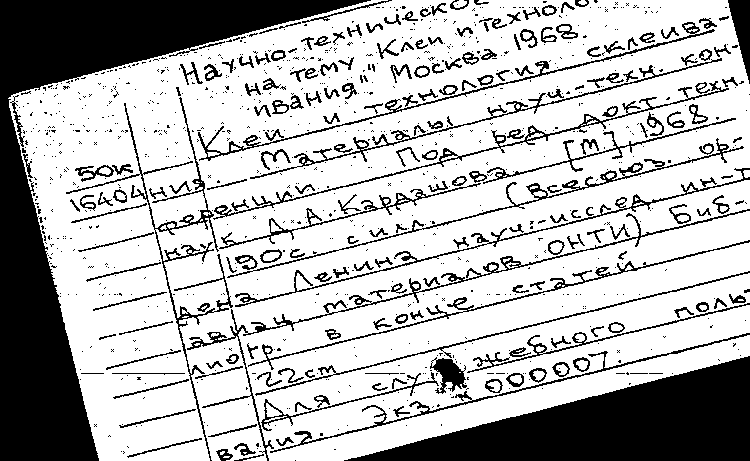 Научно-техническое
на тему "Клеи и техноло
ивания". Москва 1968.
Клеи и технология склеива-
50К
16404 ния. Материалы науч.-техн. кон-
ференции. Под ред. докт. техн.
наук Д.А. Кардашова. [М], 1968.
190 с. с илл. (Всесоюз. ор-
дена Ленина науч.-исслед. ин-т
авиац. материалов. ОНТИ). Биб-
лиогр. в конце статей.
22 см
Для служебного поль
вания. Экз. № 000007.